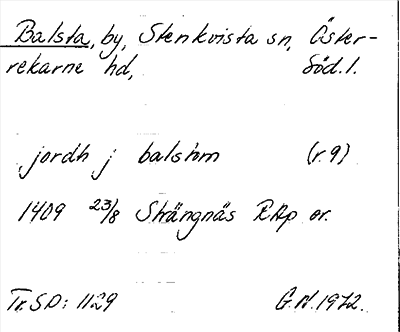 Balsta, by, Stenkvista sn, Öster-
rekarne hd, Söd.l.
jordh j balsthm (r.9)
1409 23/8 Strängnäs RAp or.
Tr. SD: 1129 G.N. 1972.